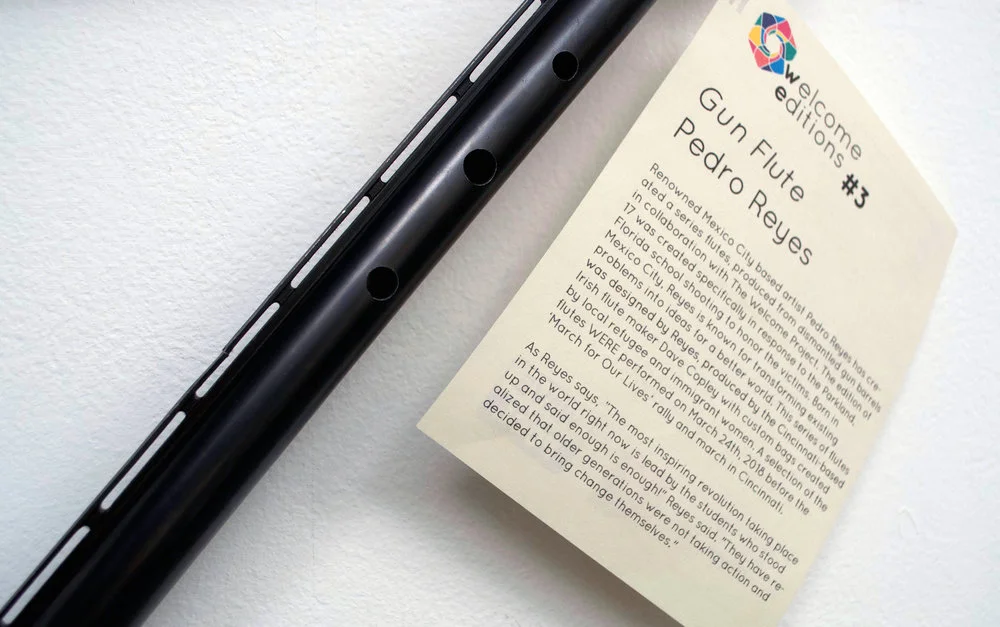 welcome
editions #3
Gun Flute
Pedro Reyes
Renowned Mexico City based artist Pedro Reyes has cre-
ated a series flutes, produced from dismantled gun barrels
in collaboration with The Welcome Project. The edition of
17 was created specifically in response to the Parkland,
Florida school shooting to honor the victims. Born in
Mexico City, Reyes is known for transforming existing
problems into ideas for a better world. This series of flutes
was designed by Reyes, produced by the Cincinnati-based
Irish flute maker Dave Copley with custom bags created
by local refugee and immigrant women. A selection of the
flutes WERE performed on March 24th, 2018 before the
'March for Our Lives' rally and march in Cincinnati.
As Reyes says, "The most inspiring revolution taking place
in the world right now is lead by the students who stood
up and said enough is enough!" Reyes said. "They have re-
alized that older generations were not taking action and
decided to bring change themselves."